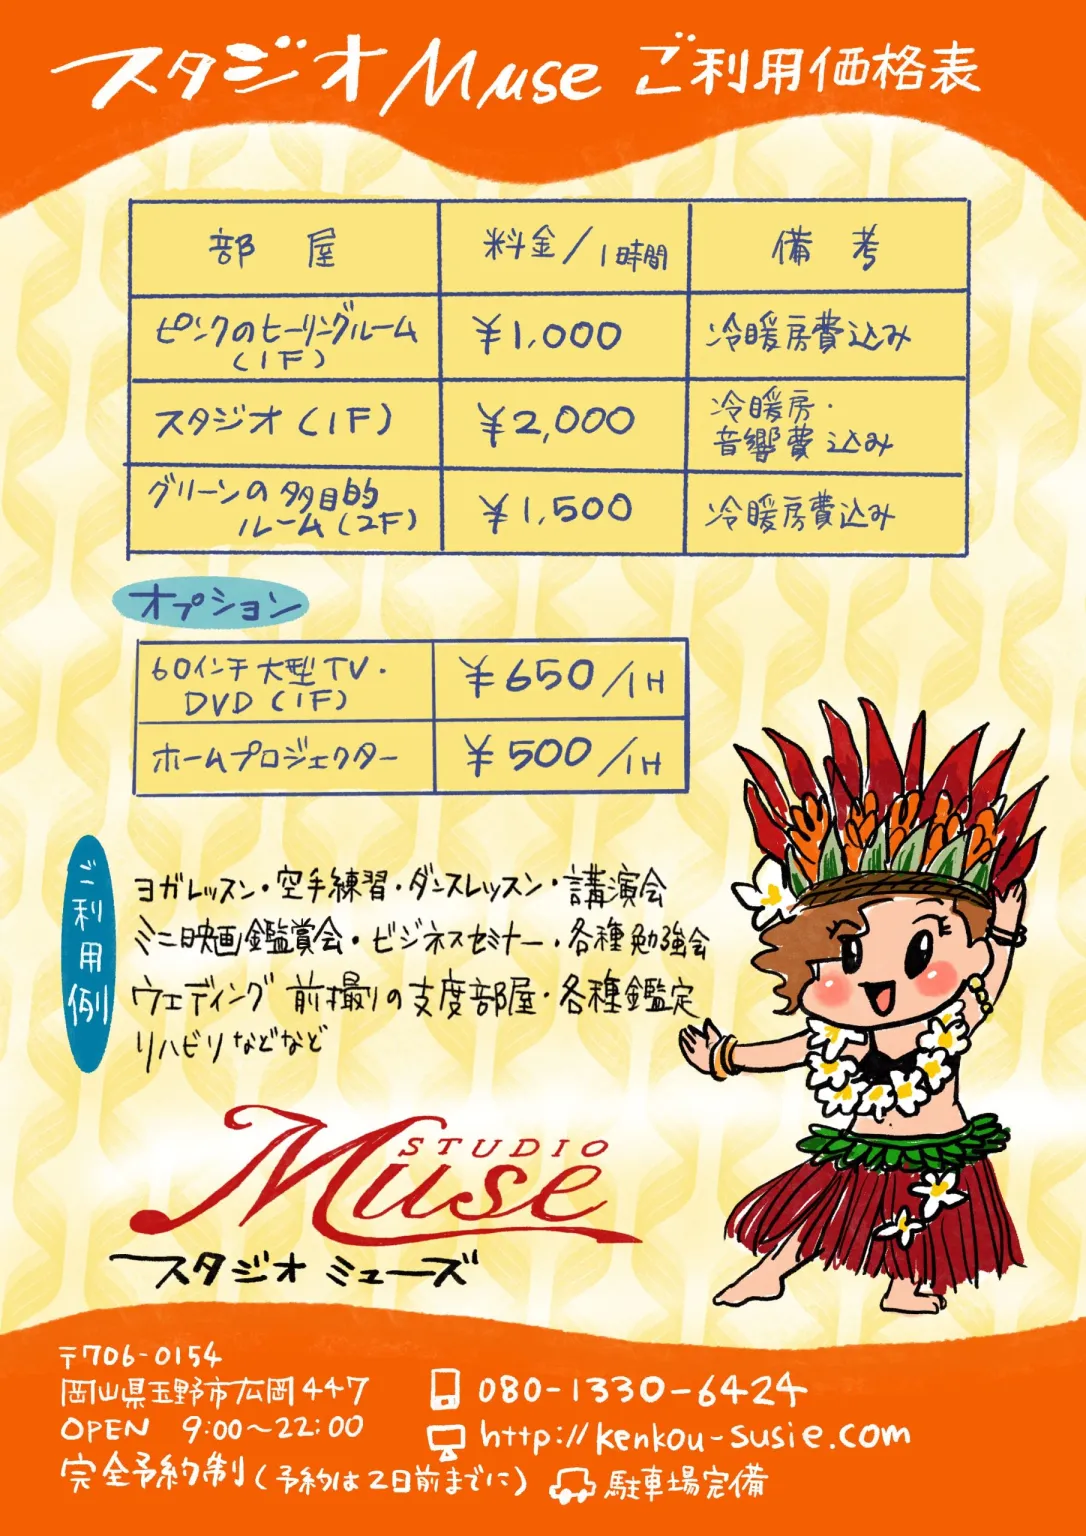 スタジオMuse ご利用価格表
部屋 料金/1時間 備考
ピンクのヒーリングルーム
(1F)
¥1,000
冷暖房費込み
スタジオ(1F)
¥2,000
冷暖房・
音響費込み
グリーンの多目的
ルーム(2F)
¥1,500
冷暖房費込み
オプション
60インチ大型TV・
DVD(1F)
¥650/1H
ホームプロジェクター
¥500/1H
ご利用例
ヨガレッスン・空手練習・ダンスレッスン・講演会
ミニ映画鑑賞会・ビジネスセミナー・各種勉強会
ウェディング前撮りの支度部屋・各種鑑定
リハビリなどなど
STUDIO
Muse
スタジオ ミューズ
〒706-0154
岡山県玉野市広岡447
OPEN 9:00~22:00
完全予約制(予約は2日前までに)
080-1330-6424
http://kenkou-susie.com
駐車場完備